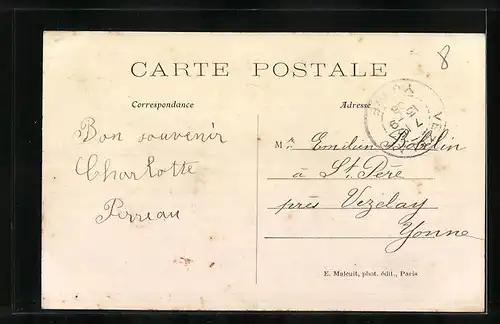 8
CARTE POSTALE
Correspondance
Adresse
Bon souvenir
Charlotte
Perreau
Mr. Emilien Bobelin
à St. Père
près Vezelay
Yonne
E. Maleuit, phot. édit., Paris